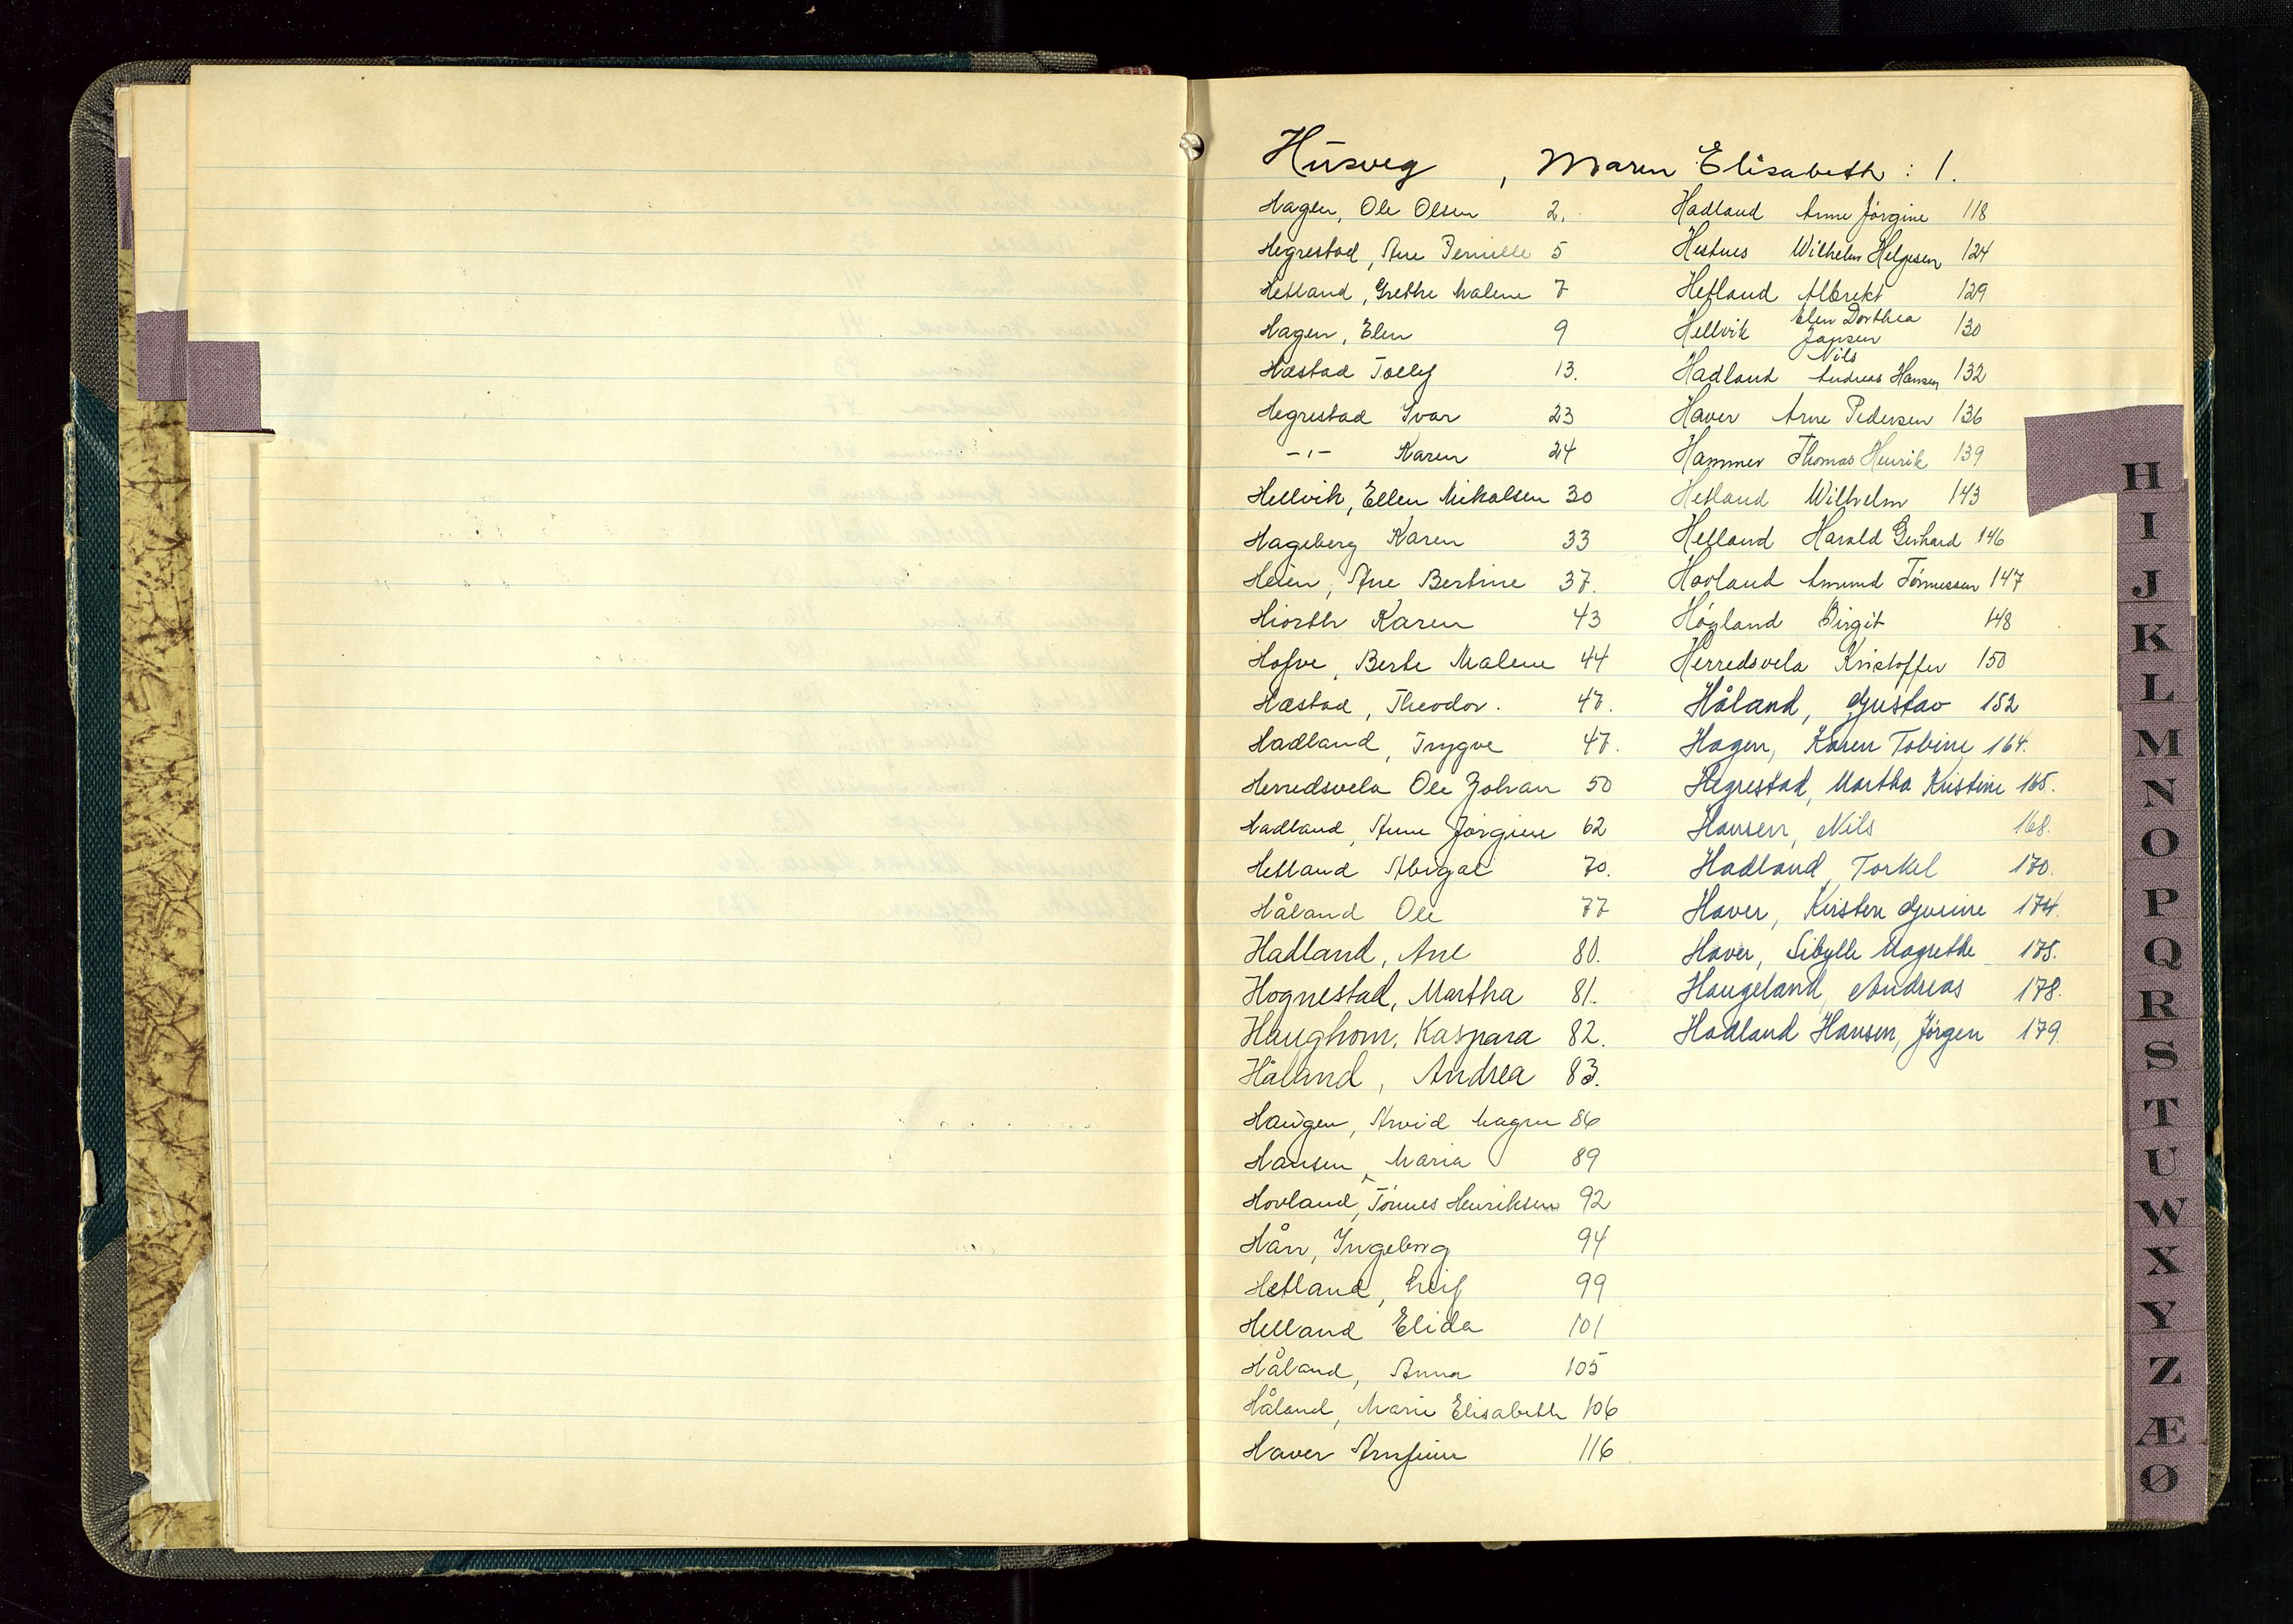 Husveg , Maren Elisabeth : 1.
Hagen, Ole Olsen 2.
Hegrestad, Ane Pernille 5
Hetland, Grethe Malene 7
Hagen, Elen 9
Hæstad Tolly 13.
Hegrestad Ivar 23
-"- Karen 24
Hellvik, Ellen Mikalsen 30
Hageberg Karen 33
Heien, Ane Bertine 37.
Hiorth Karen 43
Hofve, Berte Malene 44
Hæstad, Theodor. 47.
Hadland, Trygve 47.
Herredsvela Ole Johan 50
Hadland, Anne Jørgine 62
Hetland Abigal 70.
Håland Ole 77
Hadland, Ane 80.
Hognestad, Martha 81.
Haughom, Kaspara 82.
Håland, Andrea 83.
Haugen, Arvid Magne 86
Hansen, Maria 89
Hovland, Tønnes Henriksen 92
Hån, Ingeborg 94
Hetland, Leif 99
Helland Elida 101
Håland, Anna 105
Håland, Marie Elisabeth 106
Haver Arnfinn 116
Hadland Anne Jørgine 118
Hestnes Wilhelm Helgesen 124
Hetland Albrekt 129
Hellvik Elen Dorthea Jansen 130
Hadland Nils Andreas Hansen 132
Haver Arne Pedersen 136
Hammer Thomas Henrik 139
Hetland Wilhelm 143
Helland Harald Gerhard 146
Hovland Amund Tønnessen 147
Høyland Birgit 148
Herredsvela Kristoffer 150
Håland, Gustav 152
Hagen, Karen Tobine 164.
Hegrestad, Martha Kristine 165.
Hansen, Nils 168.
Hadland, Torkel 170.
Haver, Kirsten Gurine 174.
Haver, Sibylle Magrethe 175.
Haugeland, Andreas 178.
Hadland Hansen, Jørgen 179.
H
I
J
K
L
M
N
O
P
Q
R
S
T
U
W
X
Y
Z
Æ
Ø